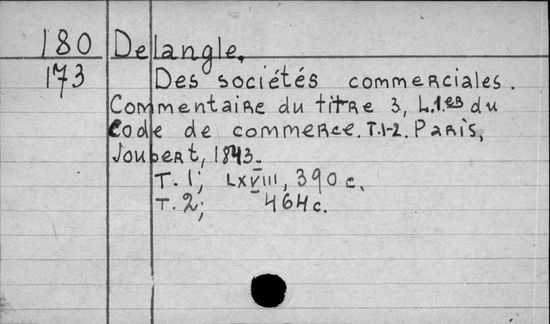 180 Delangle.
173 Des sociétés commerciales.
Commentaire du titre 3, L.1.er du
Code de commerce. T.1-2. Paris,
Joubert, 1843.
T. 1; LXVIII, 390 c.
T. 2; 464 c.